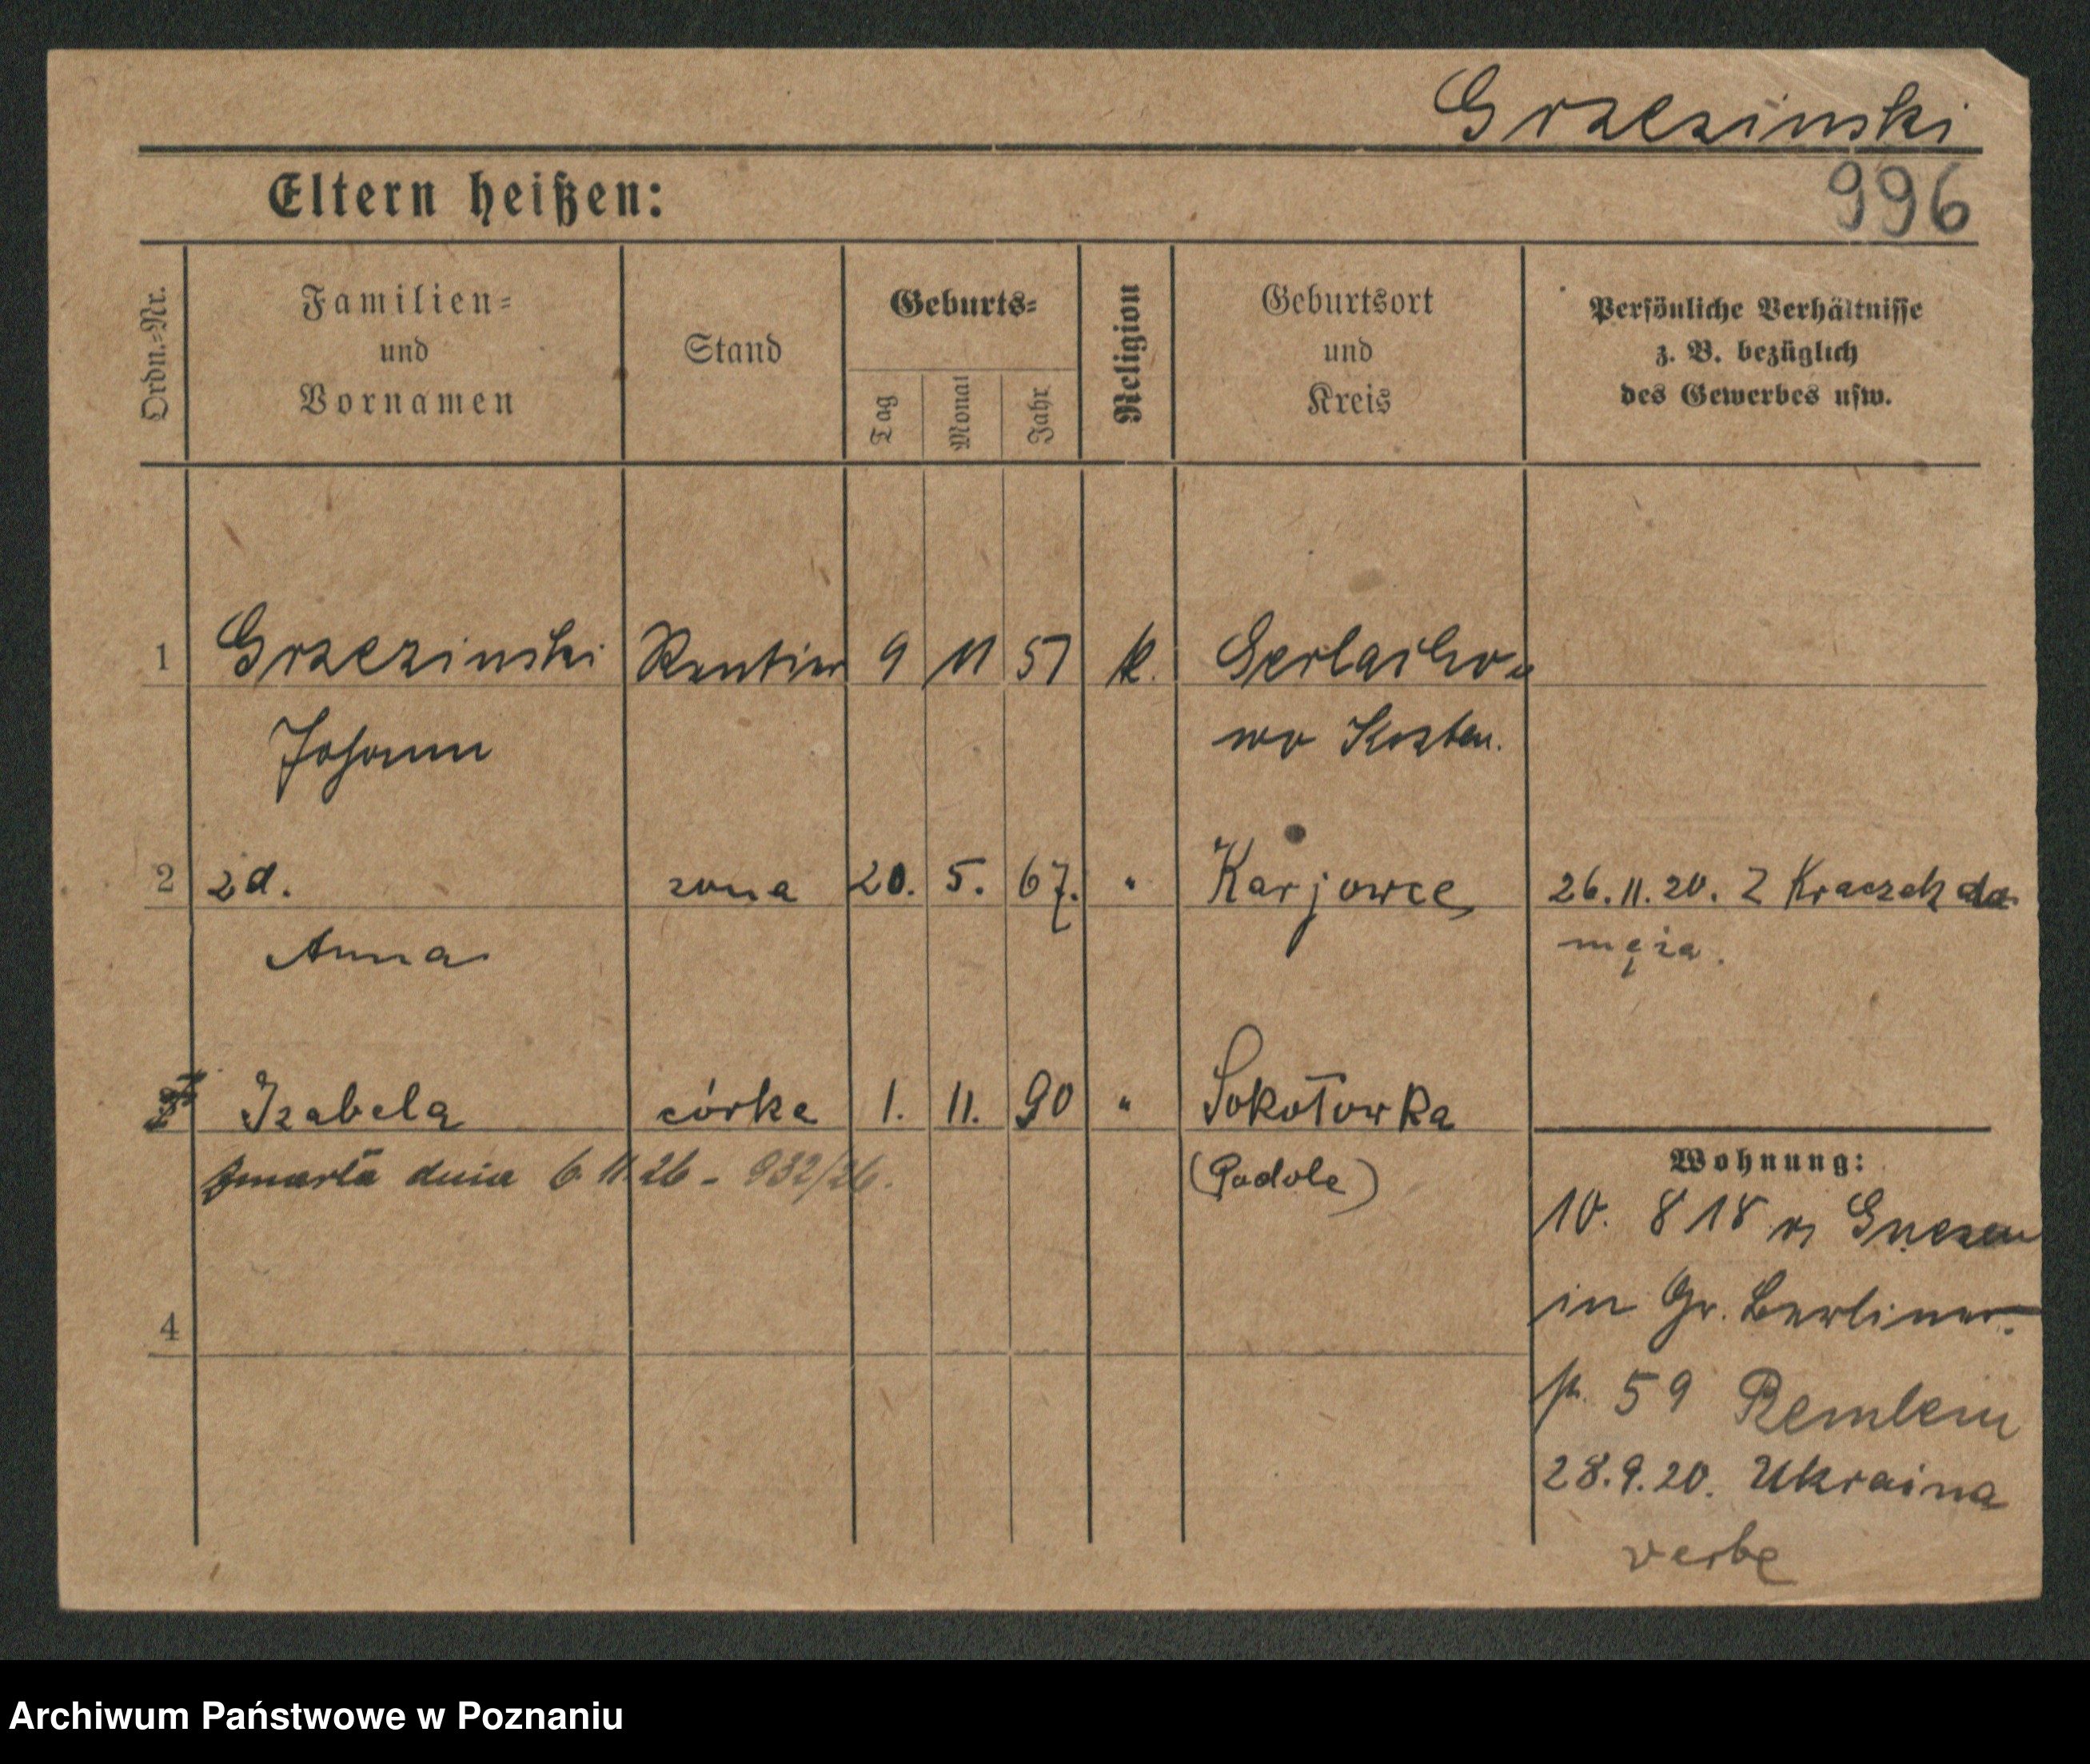 Grzezinski
996
Eltern heißen:
Ordn.-Nr.
Familien-
und
Vornamen
Stand
Geburts-
Tag
Monat
Jahr
Religion
Geburtsort
und
Kreis
Persönliche Verhältnisse
z. B. bezüglich
des Gewerbes usw.
1 Grzezinski Rentier 9 11 57 k. Gerlacho-
Johann wo Kosten.
2 zd. zona 20. 5. 67. " Karjowce 26.11.20. Z Kraczek do
Anna męża.
Izabela córka 1. 11. 90 " Sokołowka
zmarła dnia 6 11 26 - 932/26. (Podole)
Wohnung:
10. 8 18 v Gnesen
in Gr. Berliner-
st. 59
28.9.20. Ukraina
4
Archiwum Państwowe w Poznaniu